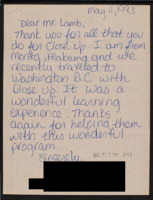 May 11, 1993
Dear Mr. Lamb,
Thank you for all that you
do for Close Up. I am from
Alabama and we
recently traveled to
Washington D.C. with
Close Up. It was a
wonderful learning
experience. Thanks
again for helping them
with this wonderful
program.
Sincerely,